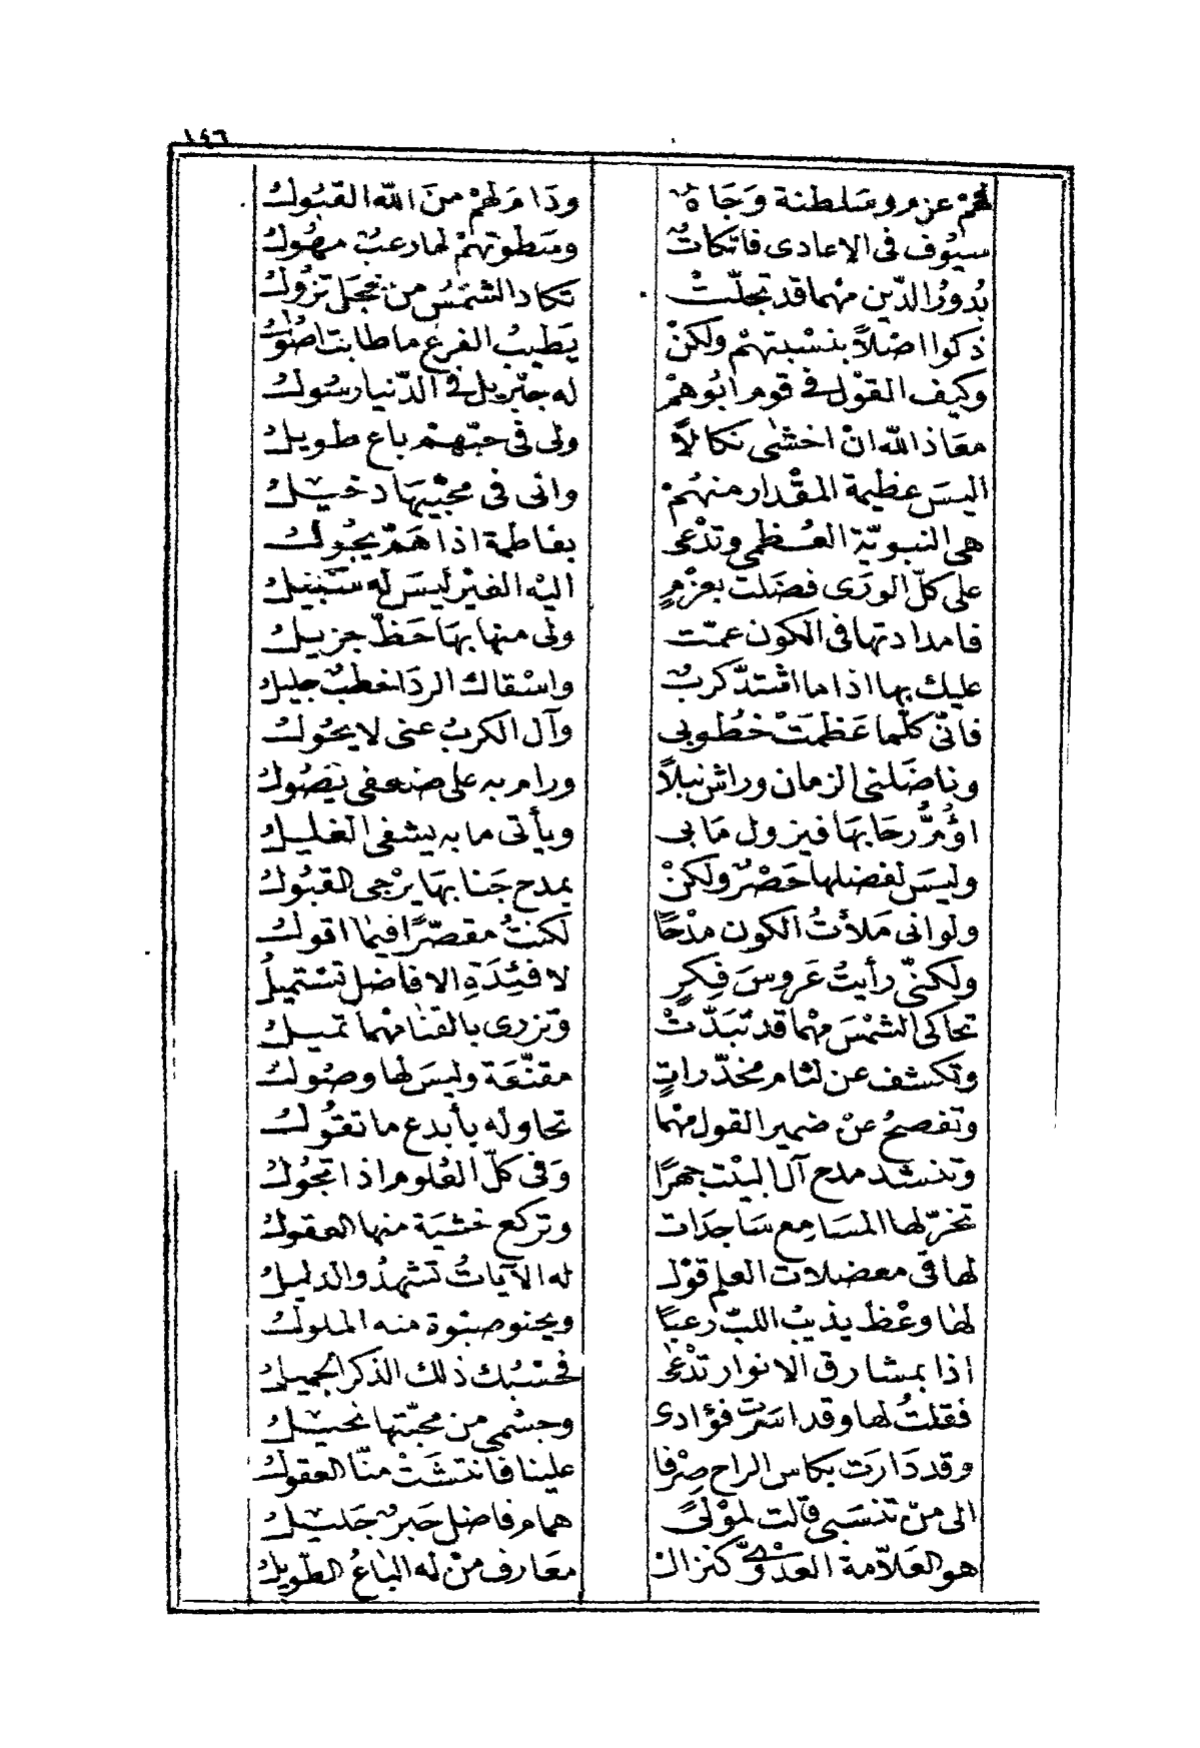 ١٤٦
لهم عزم وسَلطنة وَجَاهٌ ودَامَ لهمْ منَ الله القَبُول
سيُوف في الاعادى فاتكاتٌ وسَطوتهمْ لها رعبٌ مهُول
بُدورُ الدّين مهْما قد تجلّتْ تكاد الشمْسُ من خجَل تزُول
ذكوا اصْلاً بنسْبتهمْ ولكنْ يَطيبُ الفرع ما طابت اصُول
وكيف القوْل في قوم ابُوهمْ له جبْريل في الدّنيا رسُول
معَاذ الله انْ اخشى نكالاً ولى في حبّهمْ باع طويل
اليسَ عظيمة المقْدار منهُمْ وانى في محبّيهَا دخيل
هى النبويّة العُظمى وتدْعى بفاطمة اذا هَمّ يجُول
على كلّ الورَى فضَلتْ بعزْمٍ اليْه الغيْر ليسَ له سَبيل
فامدادتها في الكون عمّت ولى منها بهَا حَظّ جزيل
عليك بها اذا ما اشتدّ كربٌ واسْقاك الردَا خطبٌ جليل
فانّى كلّما عَظمَتْ خُطوبى وآل الكربُ عنى لا يحُول
وناضَلنى الزمان وراش نبلاً ورام به على ضعفى يصُول
اؤُمُّ رحَابهَا فيزول مَا بى ويأتى ما به يشفى الغليل
وليسَ لفضلها حَصْرٌ ولكنْ بمدح جَنابهَا يرْجى القبُول
ولو انى مَلأتُ الكون مدْحًا لكنتُ مقصّرًا فيما اقول
ولكنّى رأيتُ عَروسَ فِكرٍ لافئِدَةِ الافاضل تسْتميلُ
تحاكى الشمْسَ مهْما قد تبَدّتْ وتزرى بالقنا مهْما تميل
وتكشف عن لثام مخدّراتٍ مقنّعَة وليسَ لها وصُول
وتفصحُ عنْ ضمير القول مهْما تحاوله بأبدع ما تقُول
وتنشد مدح آل البيْت جهرًا وَفى كلّ العُلوم اذا تجُول
تخرّ لها المسَامع سَاجدَات وتركع خشيَة منها العقول
لها فى معضلات العلم قوْل له الآياتُ تشهدُ والدليل
لها وعْظ يذيبُ اللبّ رُعبًا ويحنو صبْوة منه الملول
اذا بمشارق الانوار تدْعى فحسْبك ذلك الذكر الجميل
فقلتُ لها وقد اسَرت فؤادى وجسْمى من محبّتها نحيل
وقد دَارَت بكاس الراح صِرْفا علينا فانتشَتْ منّا العقول
الى منْ تنسَبى قالت لموْلىً همام فاضل حَبرٌ جَليل
هو العَلاّمة العدْوىُّ كنز الـ معَارف منْ له البَاعُ الطّويل